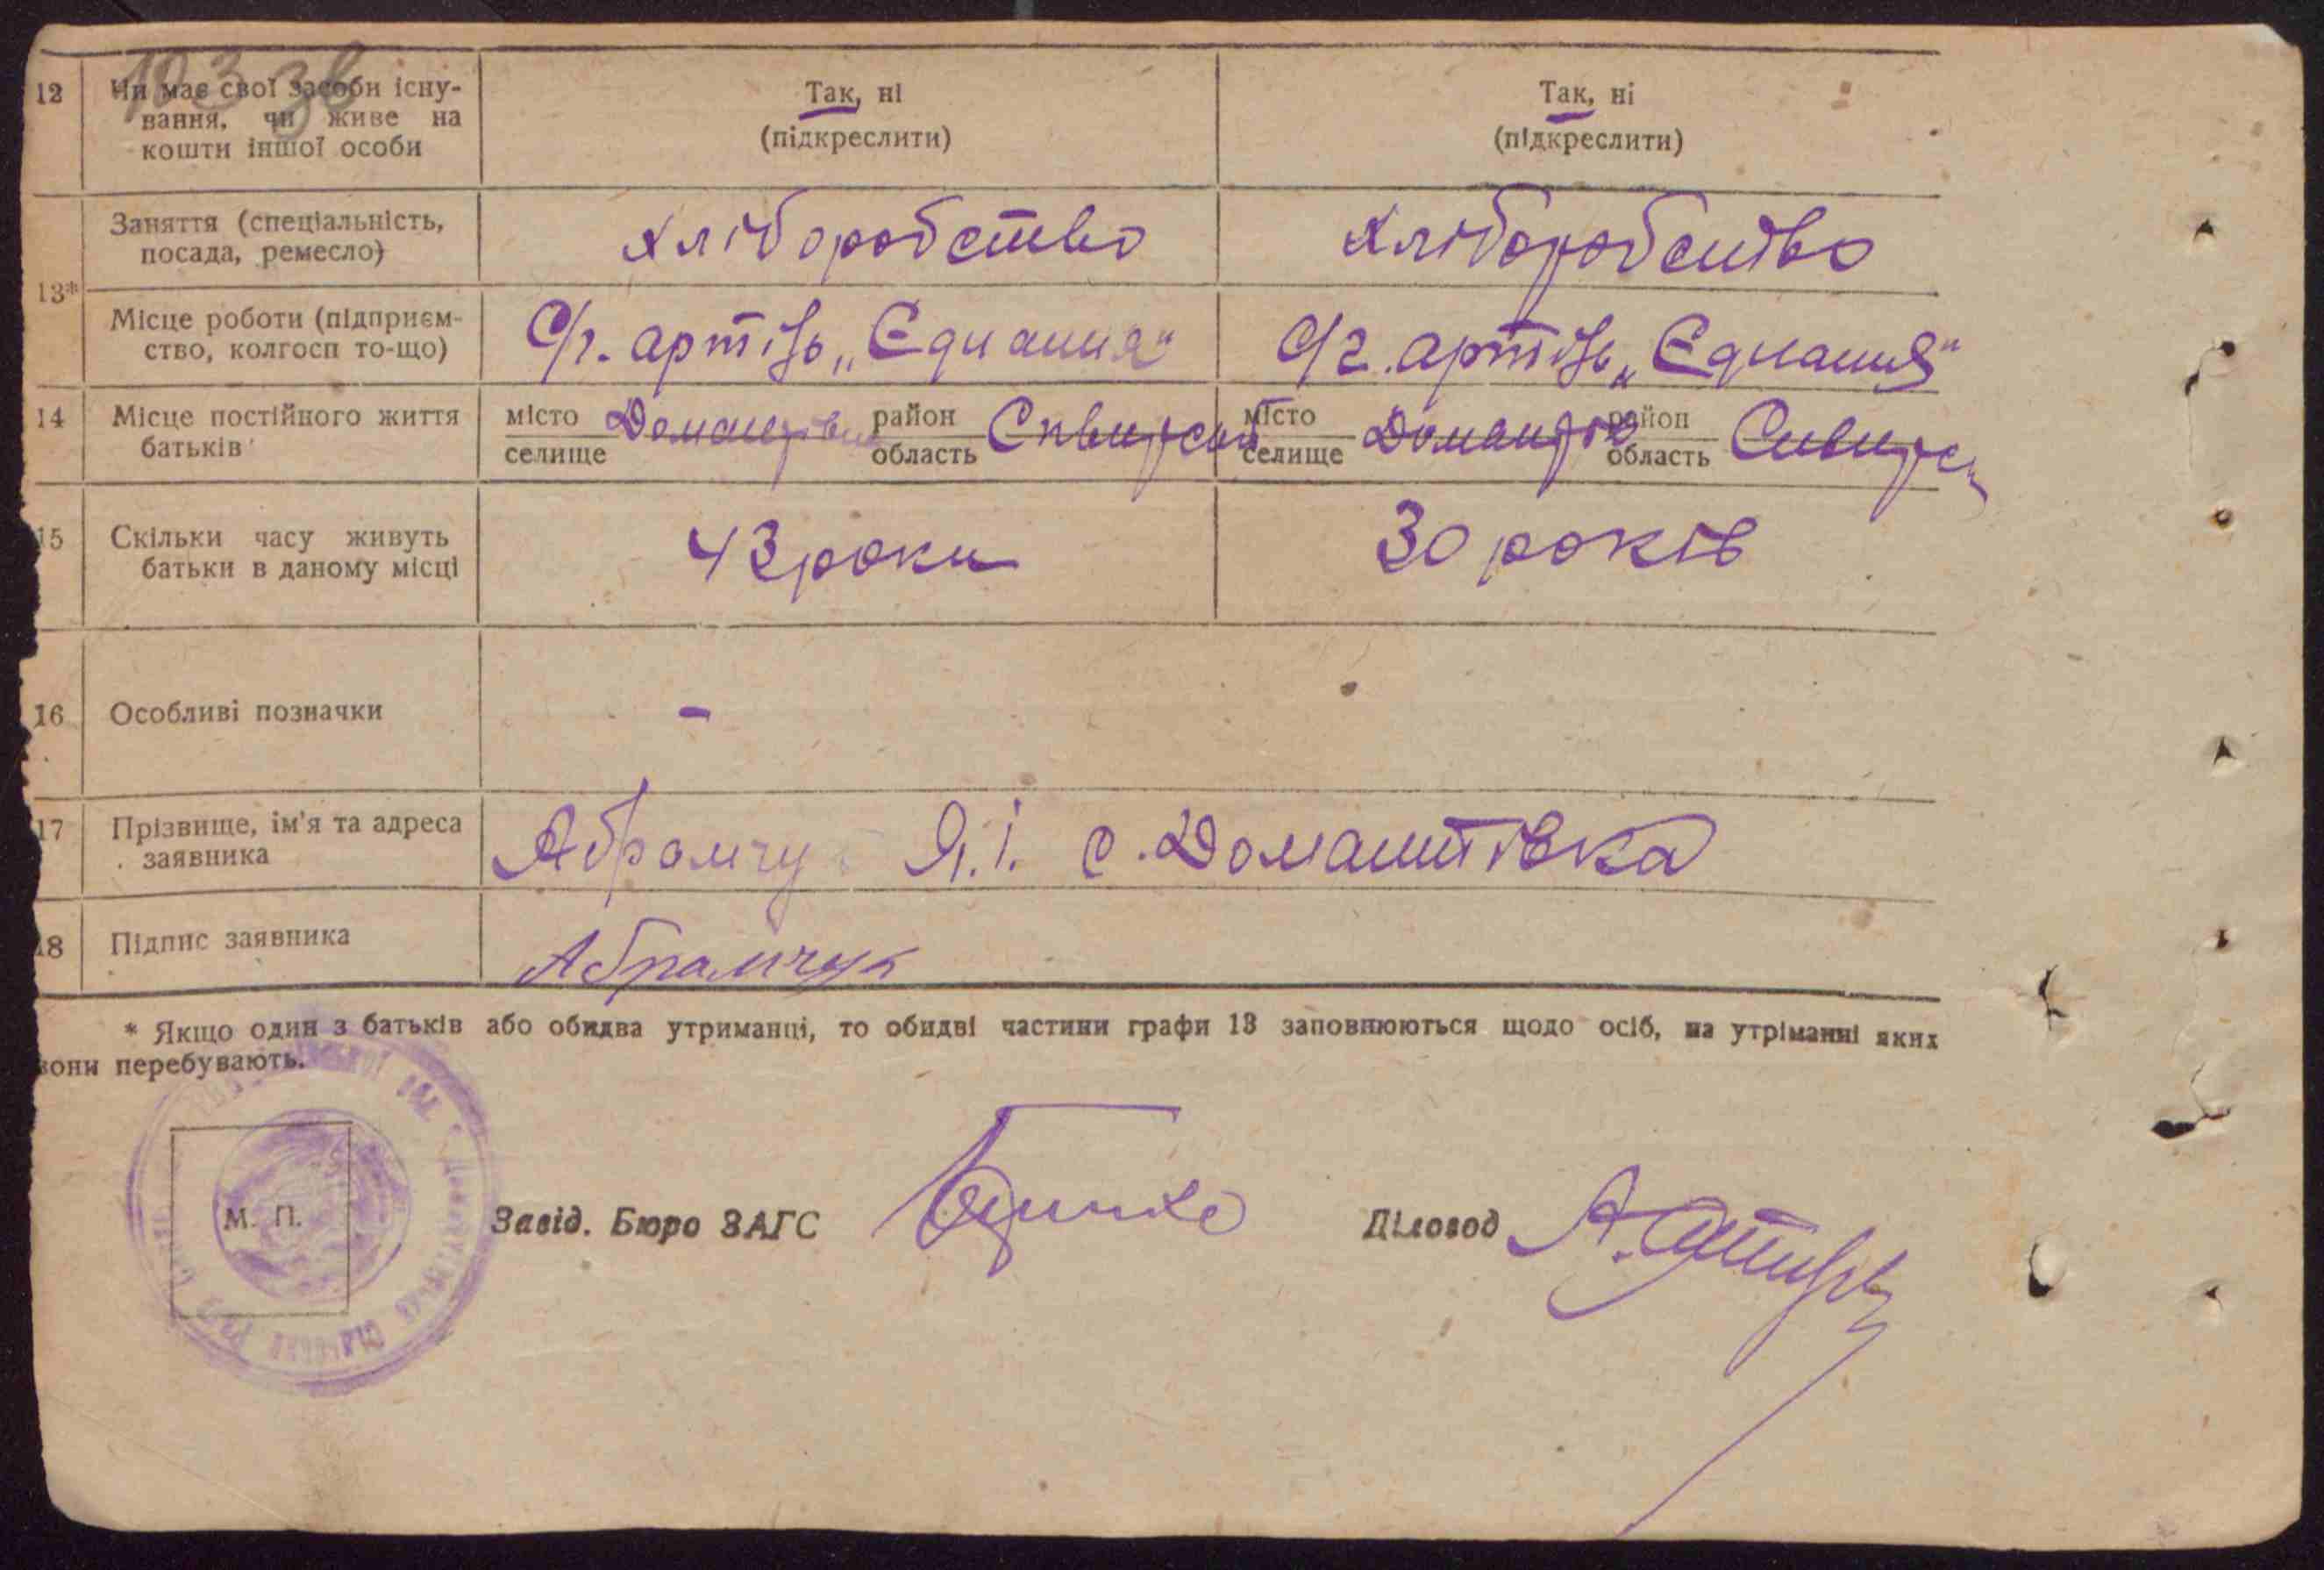 103 зв
12 Чи має свої засоби існу- Так, ні Так, ні
вання, чи живе на (підкреслити) (підкреслити)
кошти іншої особи
13* Заняття (спеціальність, хліборобство хліборобство
посада, ремесло)
Місце роботи (підприєм- С/г. артіль „Єднання“ С/г. артіль „Єднання“
ство, колгосп то-що)
14 Місце постійного життя місто район місто район
батьків селище область селище область
15 Скільки часу живуть 43 роки 30 років
батьки в даному місці
16 Особливі позначки -
17 Прізвище, ім'я та адреса Я. І. с. Домантівка
заявника
18 Підпис заявника Абрамчук
* Якщо один з батьків або обидва утриманці, то обидві частини графи 13 заповнюються щодо осіб, на утріманні яких
вони перебувають.
М. П. Завід. Бюро ЗАГС Діловод